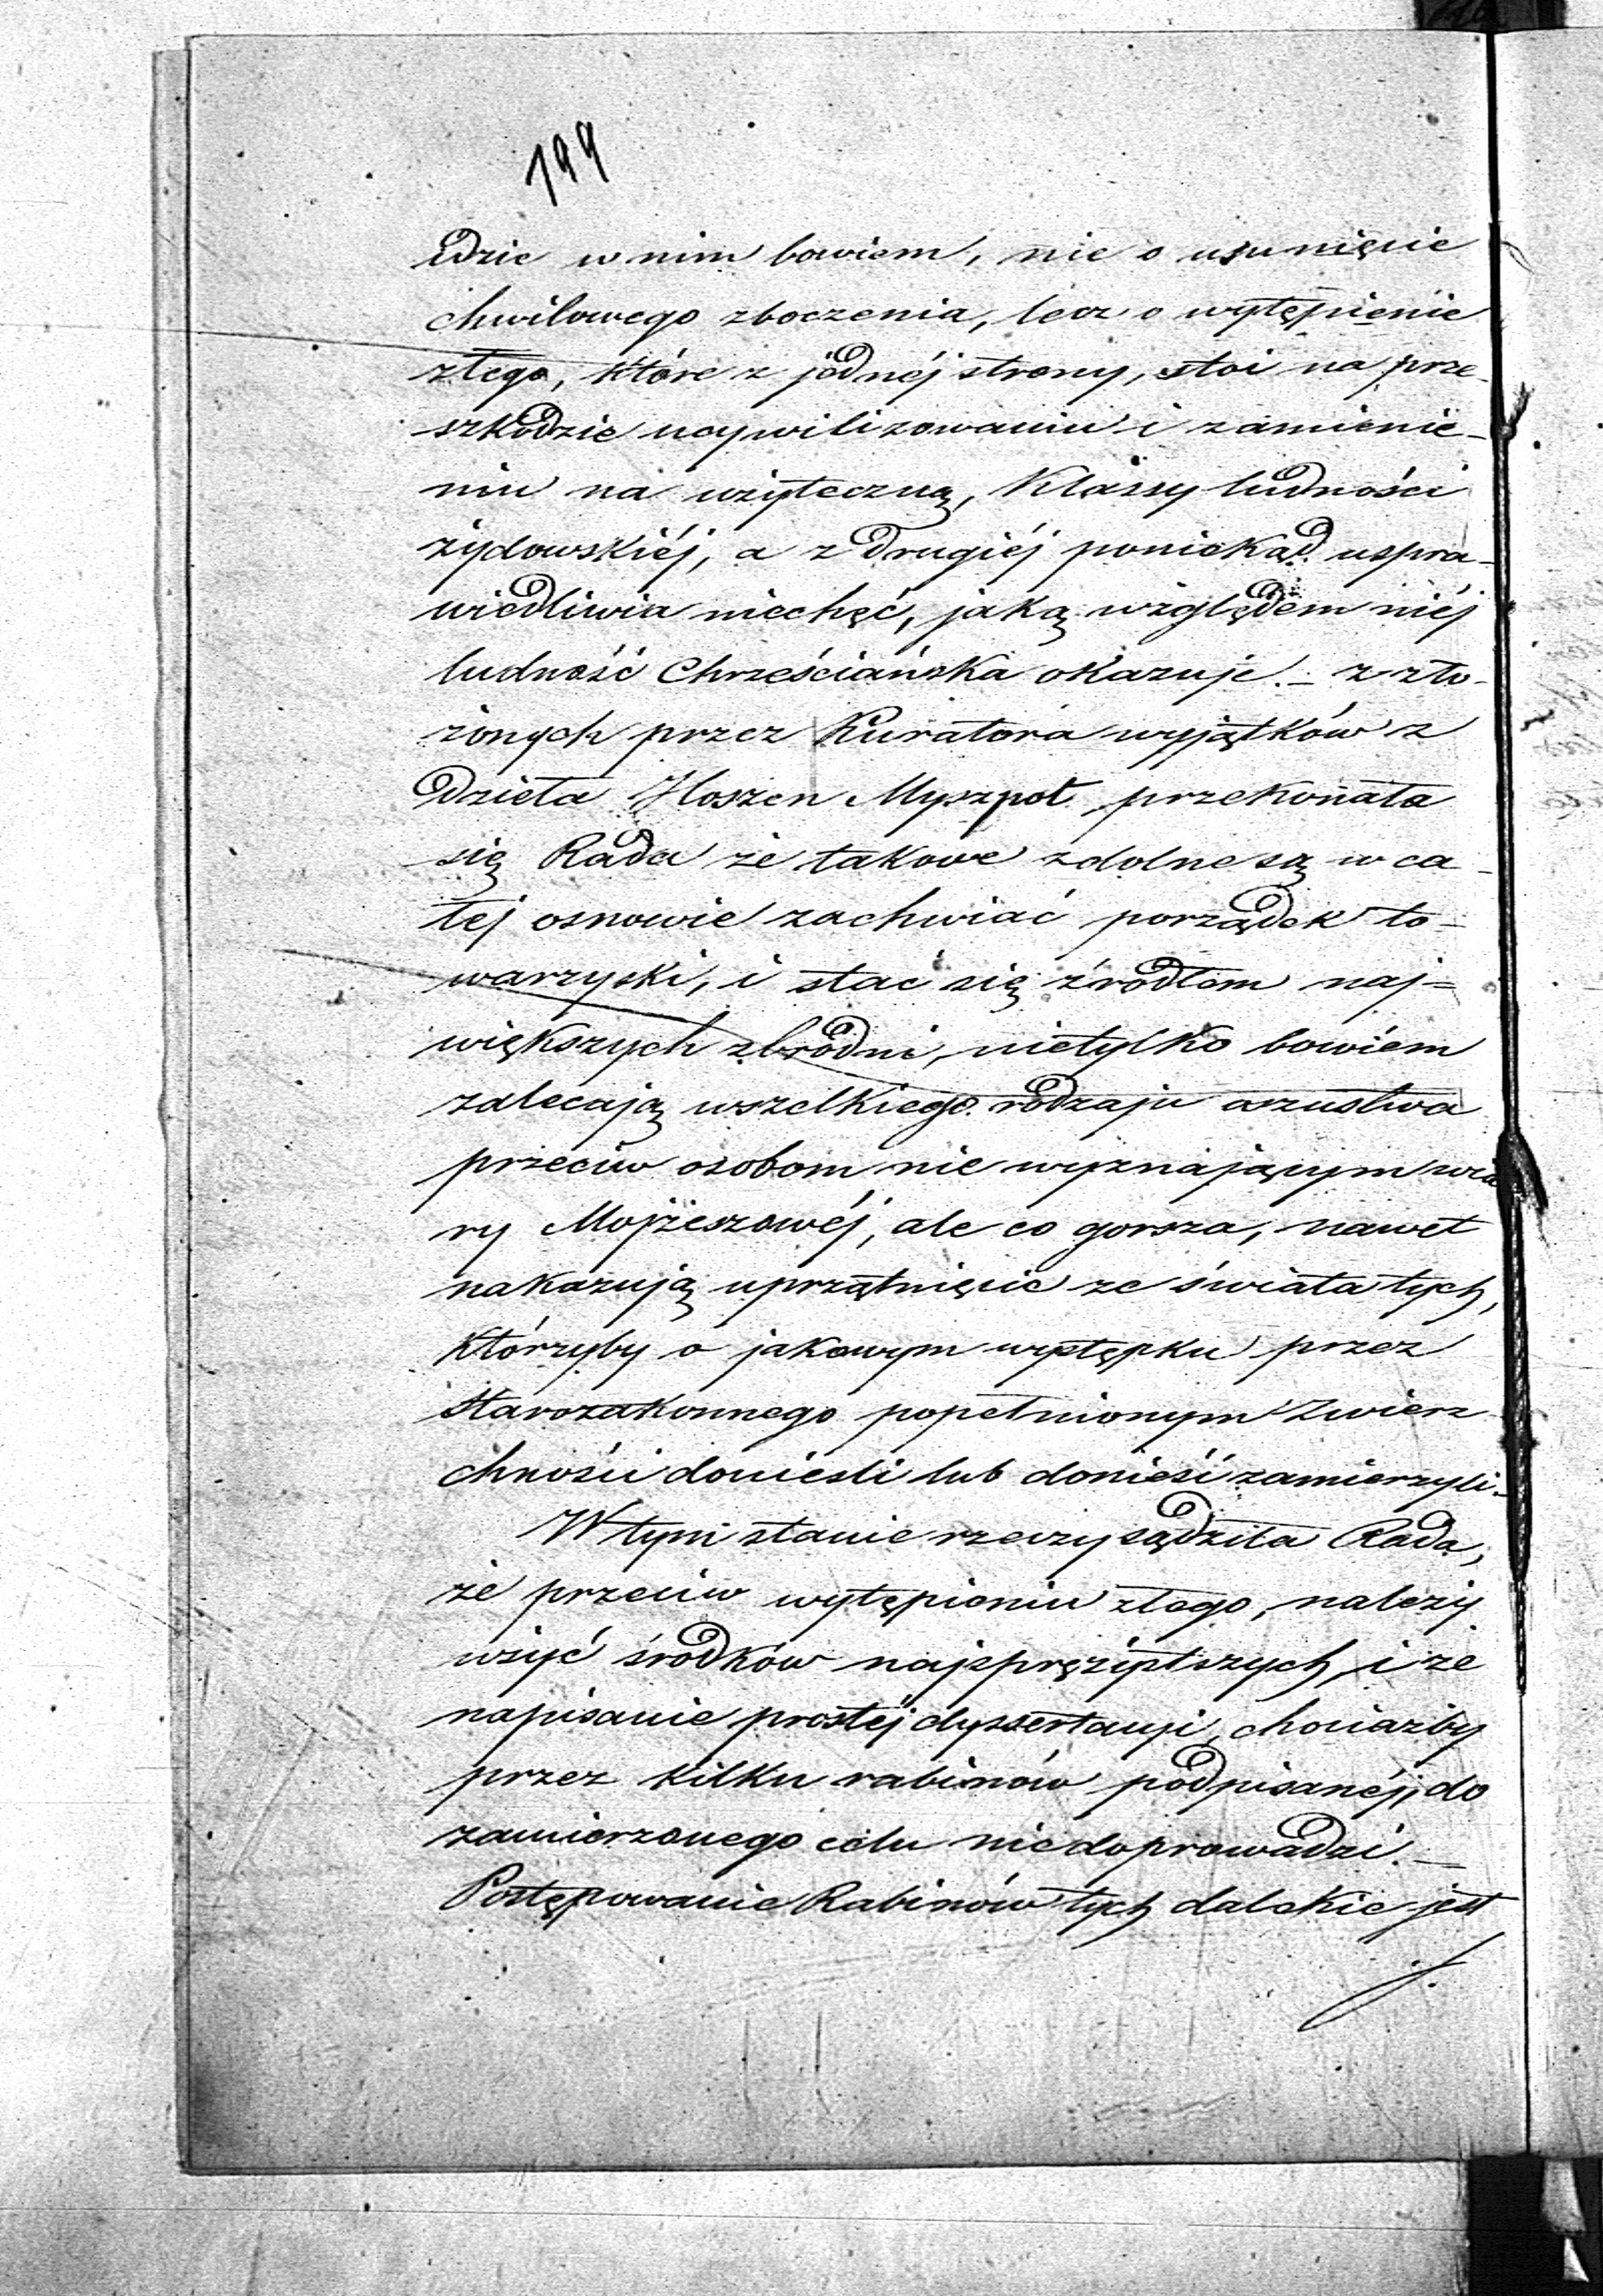 199
idzie w nim bowiem, nie o usunięcie
chwilowego zboczenia, lecz o wytępienie
złego, które z jednéj strony, stoi na prze-
szkodzie ucywilizowaniu i zamienie-
niu na użyteczną, Klassy ludności
żydowskiéj, a z drugiéj poniekąd uspra-
wiedliwia niechęć, jaką względem niéj
ludność Chrześciańska okazuje. – z zło-
żonych przez Kuratora wyjątków z
dzieła Hoszen Myszpot przekonała
się Rada że takowe zdolne są w ca-
łej osnowie zachwiać porządek to-
warzyski, i stać się źródłem naj-
większych zbrodni, nietylko bowiem
zalecają wszelkiego rodzaju oszustwa
przeciw osobom nie wyznającym wia
ry Mojżeszowéj, ale co gorsza, nawet
nakazują uprzątnięcie ze świata tych,
którzyby o jakowym występku przez
Starozakonnego popełnionym Zwierz
chności donieśli lub donieść zamierzyli. –
W tym stanie rzeczy sądziła Rada,
że przeciw wytępieniu złego, należy
użyć środków najsprężystszych, i że
napisanie prostéj dyssertacyi, chociażby
przez kilku rabinów podpisanéj, do
zamierzonego celu niedoprowadzi. –
Postępowanie Rabinów tych dalekie jest